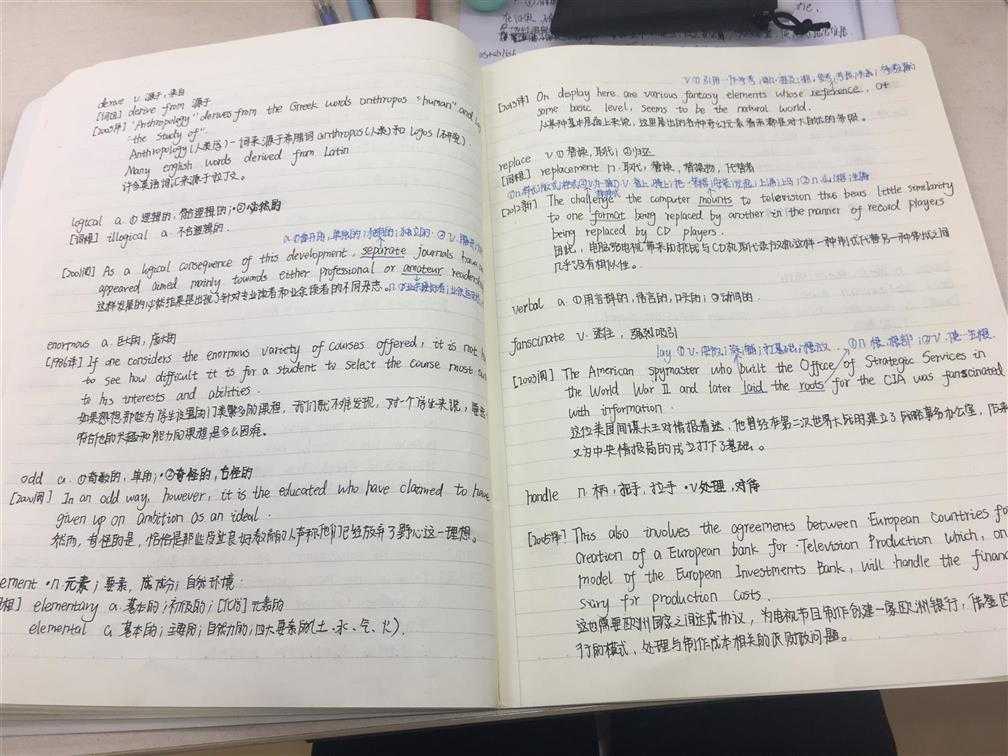 derive v. 源于，来自
[词组] derive from 源于
[2003译] "Anthropology" derives from the Greek words anthropos "human" and
"the study of".
Anthropology (人类学) 一词来源于希腊词 anthropos (人类) 和 logos (研究).
Many english words derived from Latin
许多英语词汇来源于拉丁文。
logical a. ①逻辑的，符合逻辑的；·②必然的
[词根] illogical a. 不合逻辑的.
[2001阅] As a logical consequence of this development, separate journals have
appeared aimed mainly towards either professional or amateur readership
这样发展的必然结果是出现了针对专业读者和业余读者的不同杂志.
enormous a. 巨大的，庞大的
[1996译] If one considers the enormous variety of courses offered, it is not
to see how difficult it is for a student to select the course most
to his interests and abilities.
如果想想那些为学生设置的门类繁多的课程，我们就不难发现，对一个学生来说，
符合他的兴趣和能力的课程是多么困难。
odd a. ①奇数的，单的；·②奇怪的，古怪的
[2000阅] In an odd way, however, it is the educated who have claimed to have
given up on ambition as an ideal.
然而，奇怪的是，恰恰是那些受过良好教育的人声称他们已经放弃了野心这一理想.
ement ·n. 元素；要素，成分；自然环境
elementary a. 基本的；初级的；[化学] 元素的
elemental a. 基本的；主要的；自然力的；四大要素的(土、水、气、火).
[2013译] On display here are various fantasy elements whose reference, at
some basic level, seems to be the natural world.
从某种基本层面上来说，这里展出的各种奇幻元素看来都是对大自然的参照。
replace v. ①替换，取代；②归还
[词根] replacement n. 取代，替换，替换物，代替者
[2012新] The challenge the computer mounts to television thus bears little similarity
to one format being replaced by another in the manner of record players
being replaced by CD players.
因此，电脑给电视带来的挑战与CD机取代录放机这样一种制式代替另一种制式之间
几乎没有相似性。
verbal a. ①用言辞的，语言的，口头的；②动词的.
fanscinate v. 迷住，强烈吸引
[2003阅] The American spymaster who built the Office of Strategic Services in
the World War II and later laid the roots for the CIA was fanscinated
with information.
这位美国间谍大王对情报着迷，他曾经在第二次世界大战时建立了战略事务办公室，后来
又为中央情报局的成立打下了基础。
handle n. 柄，把手，拉手 ·v. 处理，对待
[2005译] This also involves the agreements between European Countries for
creation of a European bank for Television Production which, on
model of the European Investments Bank, will handle the finances
ssary for production costs.
这也需要欧洲国家之间达成协议，为电视节目制作创建一家欧洲银行，
行的模式、处理与制作成本相关的财政问题。